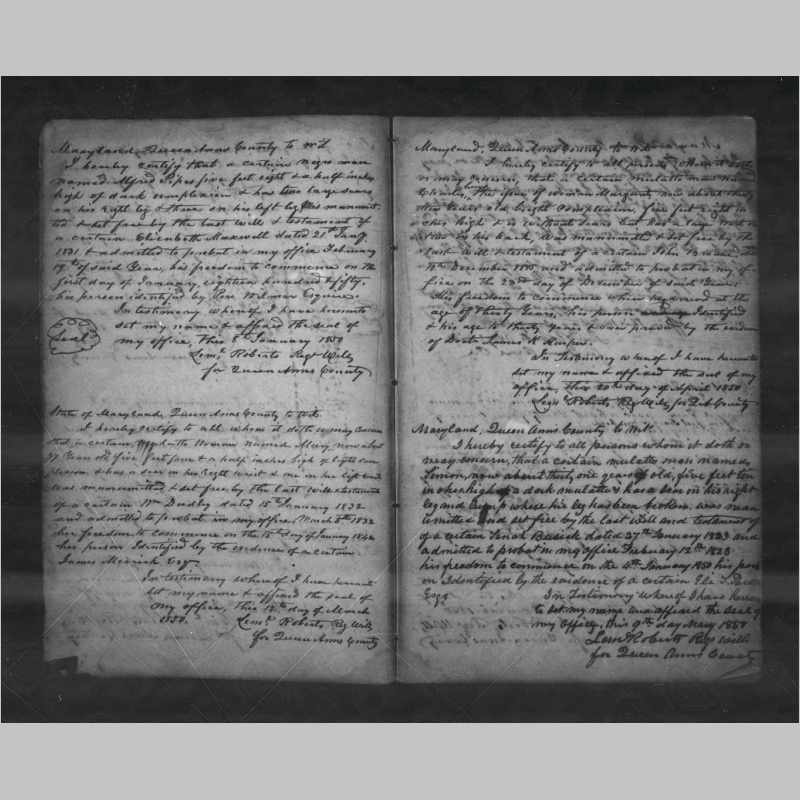 Maryland, Queen Anns County to wit
I hereby certify that a certain negro man
named Alfred Pipes five feet eight & a half inches
high of dark complexion & has two large scars
on his right leg & three on his left leg was manumit-
ted & set free by the last will & testament of
a certain Elizabeth Maxwell dated 21st Jany
1831 & admitted to probat in my office February
19th of said Year, his freedom to commence on the
first day of January, eighteen hundred & fifty,
his person identified by Wilmer Esquire.
In testimony whereof I have hereunto
set my name & affixed the seal of
my office, this 8th January 1850
Seal
Leml Roberts Regr Wills
for Queen Anns County
State of Maryland, Queen Anns County to wit
I hereby certify to all whom it doth or may concern
that a certain Mulatto Woman named Mary, now about
37 Years old five feet four & a half inches high of light com
plexion & has a scar on his right wrist & one in her left hand
was manumitted & set free by the last will & testament
of a certain Wm Dudley dated 15th January 1832
and admitted to probat in my office March 8th 1832
her freedom to commence on the 15th day of January
her person Identified by the evidence of a certain
James Merrick Esqr
In testimony whereof I have hereunto
set my name & affixed the seal of
my office, this 12th day of March
1850. Leml Roberts Reg Wills
for Queen Anns County
Maryland, Queen Anns County to wit
I hereby certify to all persons whom it doth
or may concern, that a certain mulatto man named
Charles, the issue of woman Margaret, now about thirty
Years old bright complexion, five feet eight in
ches high & is without scars but has a large
on his back, was manumitted & set free by the
last will & testament of a certain John Brown
December and admitted to probat in my of-
fice on the 23rd day of December of said Year
his freedom to commence when he arrived at the
age of thirty Years, his person Identified
& his age to thirty Years & over proved by the eviden
of Doctr James
In Testimony whereof I have hereunto
set my name & affixed the seal of my
office, this 20th day of April 1850
Leml Roberts, Reg Wills, for County
Maryland, Queen Anns County to wit.
I hereby certify to all persons whom it doth or
may concern, that a certain mulatto man named
Simon, now about thirty one years of old, five feet ten
inches high of a dark mulatto & has a scar on his right
leg and where his leg has been broken, was man
umitted and set free by the last will and testament of
of a certain Bessick dated 27th January 1823 and
admitted to probat in my office February 12th 1823
his freedom to commence on the 4th January 1850 his pers
on Identified by the evidence of a certain
Esqr In Testimony whereof I have hereun
to set my name and affixed the seal of
my office, this 9th day May 1850
Leml Roberts Reg Wills
for Queen Anns County